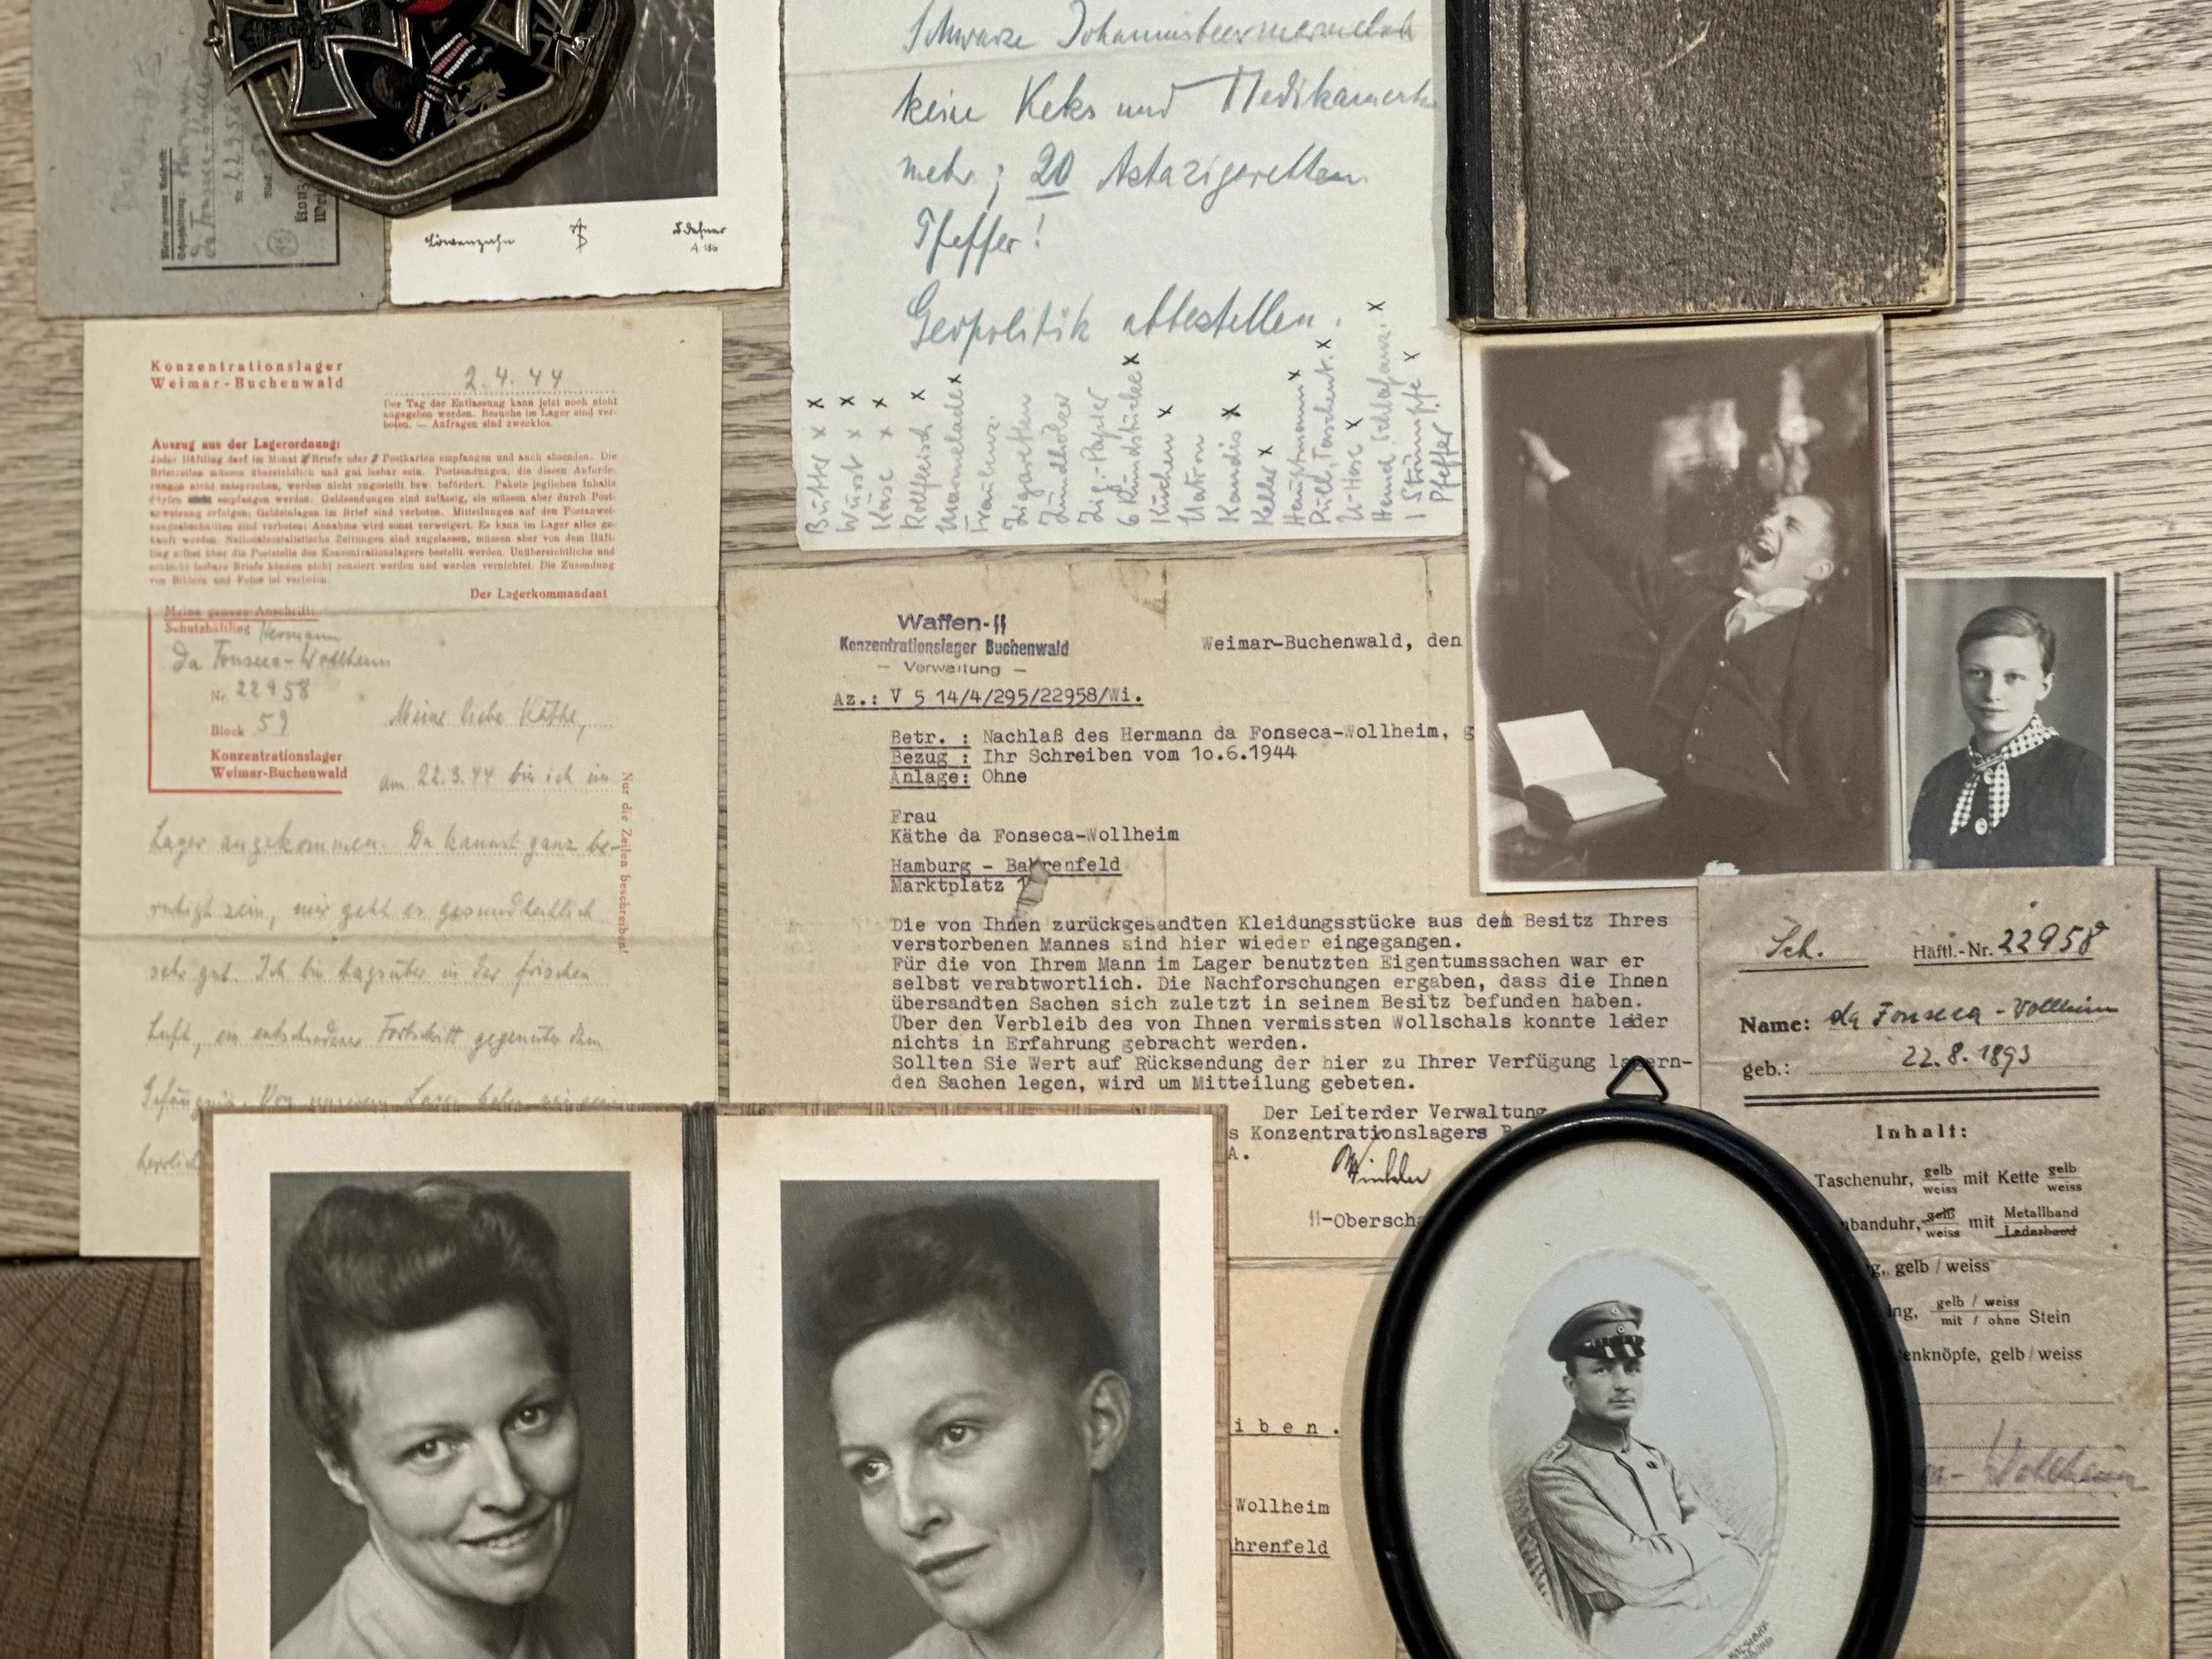 Meine genaue Anschrift:
da Fonseca-Woll
Nr. 22958
Konz
Wei
Löwenzahn
A 186
Schwarze Johannisbeermarmelade
keine Keks und Medikamente
mehr; 20 Astazigaretten
Pfeffer!
Geopolitik abbestellen.
Butter x x
Wurst x x
Käse x x
Rollfleisch x
Marmelade x
Traubenz.
Zigaretten
Zündhölzer
Zig.-Papier
6 Rundstücke x
Kuchen x
Natron
Kandis x
Keller x
Hauptmann x
Pull, Taschent. x
U-Hose x
Hemd, Schlafanz. x
1 Strümpfe x
Pfeffer
Konzentrationslager
Weimar-Buchenwald
2.4.44
Der Tag der Entlassung kann jetzt noch nicht
angegeben werden. Besuche im Lager sind ver-
boten. — Anfragen sind zwecklos.
Auszug aus der Lagerordnung:
Jeder Häftling darf im Monat Briefe oder Postkarten empfangen und auch absenden. Die
Briefzeilen müssen übersichtlich und gut lesbar sein. Postsendungen, die diesen Anforde-
rungen nicht entsprechen, werden nicht zugestellt bzw. befördert. Pakete jeglichen Inhalts
dürfen empfangen werden. Geldsendungen sind zulässig, sie müssen aber durch Post-
anweisung erfolgen; Geldeinlagen im Brief sind verboten. Mitteilungen auf den Postanwei-
sungsabschnitten sind verboten; Annahme wird sonst verweigert. Es kann im Lager alles ge-
kauft werden. Nationalsozialistische Zeitungen sind zugelassen, müssen aber von dem Häft-
ling selbst über die Poststelle des Konzentrationslagers bestellt werden. Unübersichtliche und
schlecht lesbare Briefe können nicht zensiert werden und werden vernichtet. Die Zusendung
von Bildern und Fotos ist verboten.
Der Lagerkommandant
Meine genaue Anschrift:
Schutzhäftling Hermann
da Fonseca-Wollheim
Nr. 22958
Block 59
Konzentrationslager
Weimar-Buchenwald
Meine liebe Käthe,
am 22.3.44 bin ich im
Lager angekommen. Du kannst ganz be-
ruhigt sein, mir geht es gesundheitlich
sehr gut. Ich bin tagsüber in der frischen
Luft, ein entschiedener Fortschritt gegenüber dem
Gefängnis. Von unserem Lager haben wir einen
herrlich
Nur die Zeilen beschreiben!
Waffen-SS
Konzentrationslager Buchenwald
— Verwaltung —
Weimar-Buchenwald, den
Az.: V 5 14/4/295/22958/Wi.
Betr. : Nachlaß des Hermann da Fonseca-Wollheim, g
Bezug : Ihr Schreiben vom 1o.6.1944
Anlage: Ohne
Frau
Käthe da Fonseca-Wollheim
Hamburg - Bahrenfeld
Marktplatz
Die von Ihnen zurückgesandten Kleidungsstücke aus dem Besitz Ihres
verstorbenen Mannes sind hier wieder eingegangen.
Für die von Ihrem Mann im Lager benutzten Eigentumssachen war er
selbst verabtwortlich. Die Nachforschungen ergaben, dass die Ihnen
übersandten Sachen sich zuletzt in seinem Besitz befunden haben.
Über den Verbleib des von Ihnen vermissten Wollschals konnte leider
nichts in Erfahrung gebracht werden.
Sollten Sie Wert auf Rücksendung der hier zu Ihrer Verfügung lagern-
den Sachen legen, wird um Mitteilung gebeten.
Der Leiterder Verwaltung
s Konzentrationslagers B
A.
Winkler
SS-Obersch
iben.
Wollheim
hrenfeld
Sch. Häftl.-Nr. 22958
Name: da Fonseca-Wollheim
geb.: 22.8.1893
Inhalt:
Taschenuhr, gelb/weiss mit Kette gelb/weiss
banduhr, gelb/weiss mit Metallband/Lederband
g, gelb / weiss
ing, gelb / weiss mit / ohne Stein
enknöpfe, gelb / weiss
ca-Wollheim